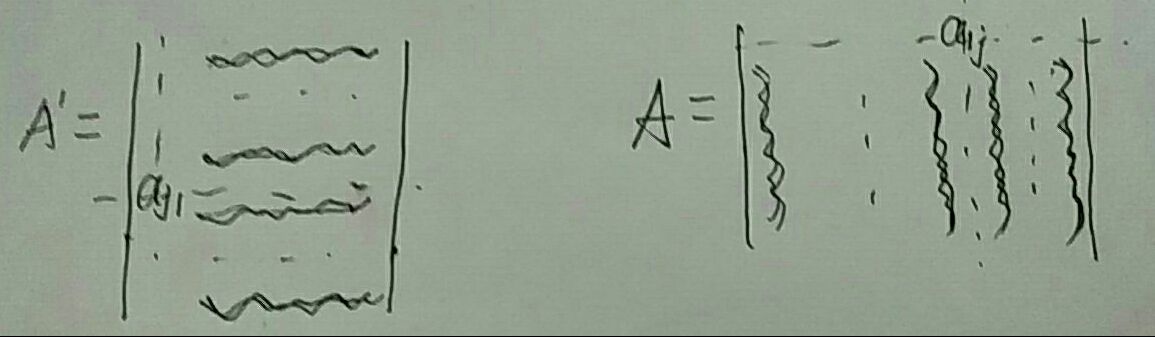 A' = | a_{j1} |
A = | a_{1j} |